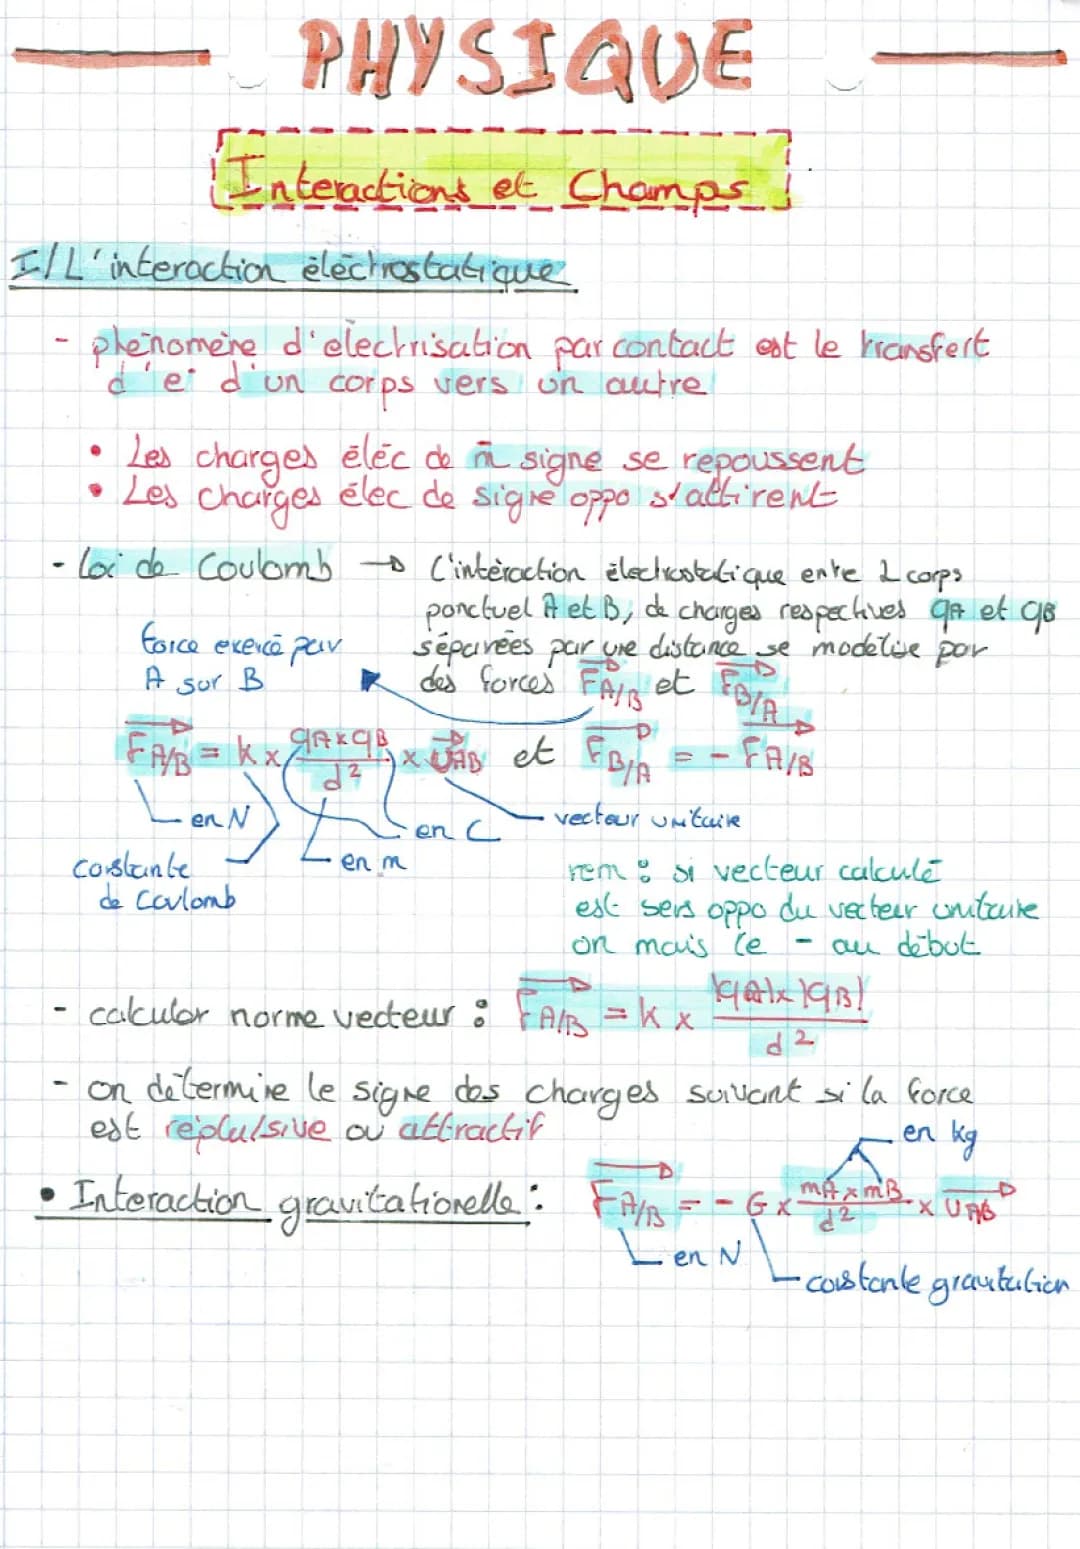 PHYSIQUE
Interactions et Champs
I/L'interaction éléctrostatique
- phénomène d'electrisation par contact est le transfert
d'e⁻ d'un corps vers un autre
• Les charges éléc de m̄ signe se repoussent
• Les charges élec de signe oppo s'attirent
- Loi de Coulomb → L'intéraction électrostatique entre 2 corps
ponctuel A et B, de charges respectives qA et qB
séparées par une distance se modélise par
des forces F⃗A/B et F⃗B/A
force exercé par
A sur B
F⃗A/B = k × qA×qB / d² × U⃗AB et F⃗B/A = - F⃗A/B
en N
en C
vecteur unitaire
en m
constante
de Coulomb
rem : si vecteur calculé
est sens oppo du vecteur unitaire
on mais le - au début
- calculer norme vecteur : F⃗A/B = k × |qA|×|qB| / d²
- on détermine le signe des charges suivant si la force
est réplulsive ou attractif
en kg
• Interaction gravitationelle : F⃗A/B = - G × mA×mB / d² × U⃗AB
en N
constante gravitation